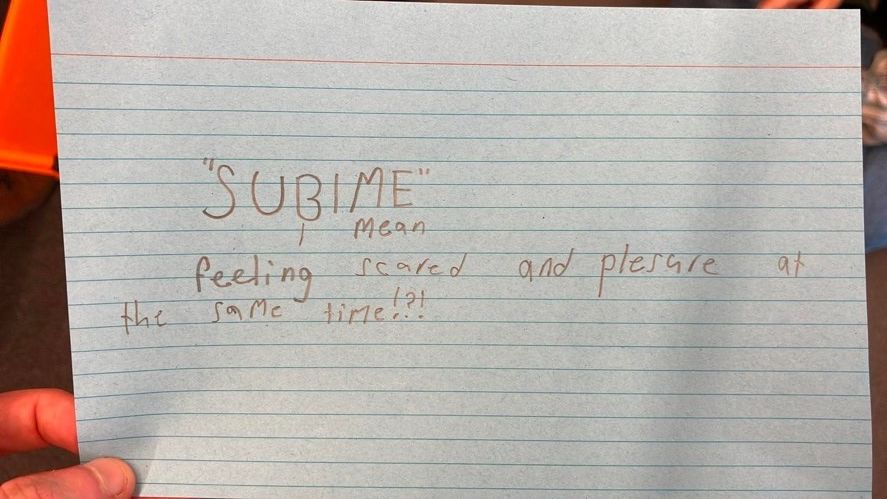 "SUBIME"
mean
feeling scared and plesure at
the same time!?!